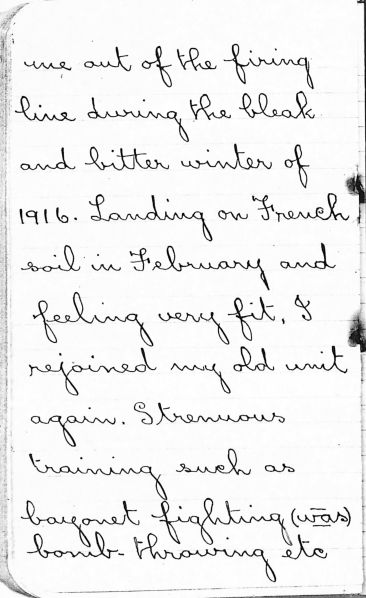 me out of the firing
line during the bleak
and bitter winter of
1916. Landing on French
soil in February and
feeling very fit, I
rejoined my old unit
again. Strenuous
training such as
bayonet fighting (was)
bomb-throwing etc